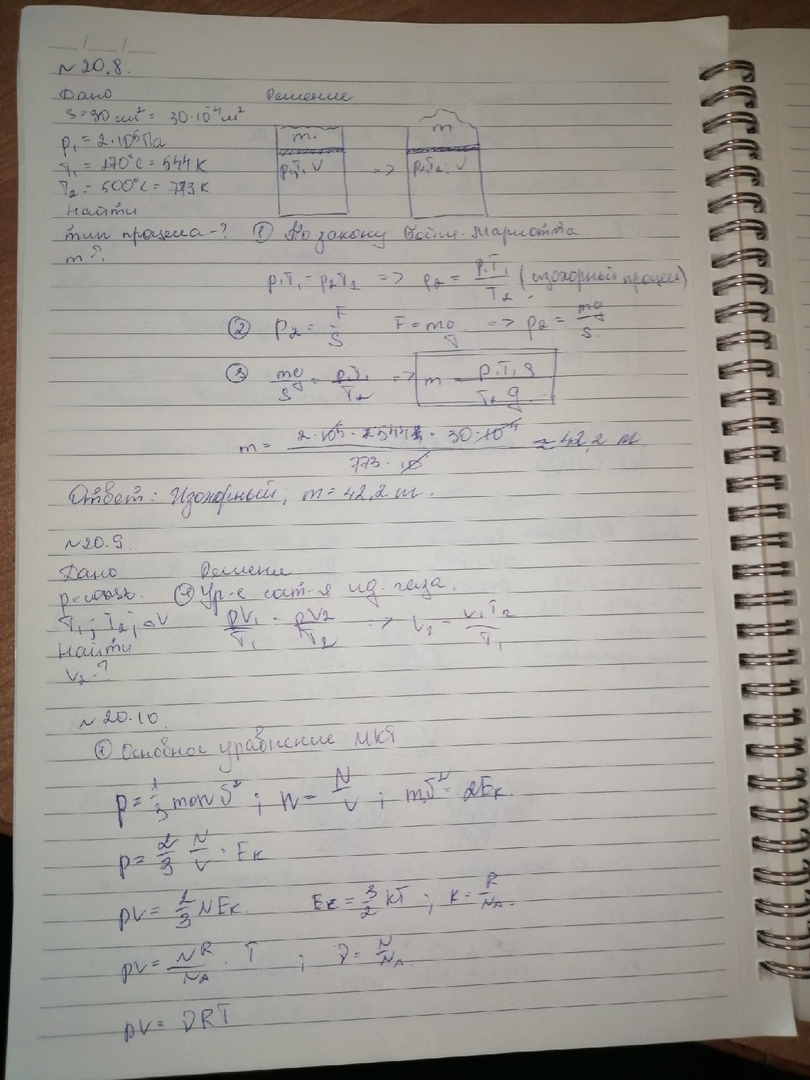 № 20.8.
Дано Решение
S = 30 см² = 30·10⁻⁴ м²
p₁ = 2·10⁵ Па
T₁ = 270°C = 544 K
T₂ = 500°C = 773 K
Найти
тип процесса-?
m-?
m.
p₁T₁ V
=>
m
p₂T₂ V
① По закону Бойля-Мариотта
p₁T₁ = p₂T₂ => p₂ = p₁T₁/T₂ (изохорный процесс)
② P₂ = F/S F = mg => p₂ = mg/S
③ mg/S = p₁T₁/T₂ => m = p₁T₁S/T₂g
m = 2·10⁵·544·30·10⁻⁴/773·10 ≈ 42,2 т
Ответ: Изохорный; m = 42,2 т.
№ 20.9.
Дано Решение
p=const. ① Ур-е сост-я ид. газа.
T₁; T₂; V pV₁/T₁ = pV₂/T₂ => V₂ = V₁T₂/T₁
Найти
V₂-?
№ 20.10.
① Основное уравнение МКТ
p = 1/3 m₀nυ² ; n = N/V ; mυ² = 2Eк.
p = 2/3 N/V · Eк
pV = 2/3 NEк. Eк = 3/2 kT ; k = R/Nₐ.
pV = NR/Nₐ · T ; ν = N/Nₐ.
pV = νRT